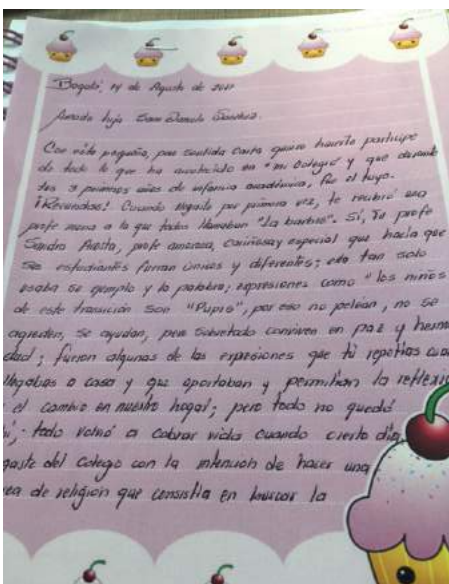 Bogotá, 14 de Agosto de 2021
Amada hija
Con esta pequeña, pero sentida Carta quiero hacerte participe
de todo lo que ha acontecido en "mi Colegio" y que durante
tus 3 primeros años de infancia académica, fue el tuyo.
¡Recuerdas! Cuando llegaste por primera vez, te recibió una
profe mona a la que todos llamaban "la barbie". Sí, Tu profe
Sandra Acosta, profe amorosa, cariñosa y especial que hacía que
sus estudiantes fueran únicos y diferentes; ella tan solo
usaba su ejemplo y la palabra; expresiones como "los niños
de esta transición son "Pupis", por eso no pelean, no se
agreden, se ayudan, pero sobretodo conviven en paz y herman
dad; fueron algunas de las expresiones que tú repetías cuan
llegabas a casa y que aportaban y permitían la reflexió
el cambio en nuestro hogar; pero todo no quedó
hí; todo volvió a cobrar vida cuando cierto día
gaste del colegio con la intención de hacer una
rea de religión que consistía en buscar la